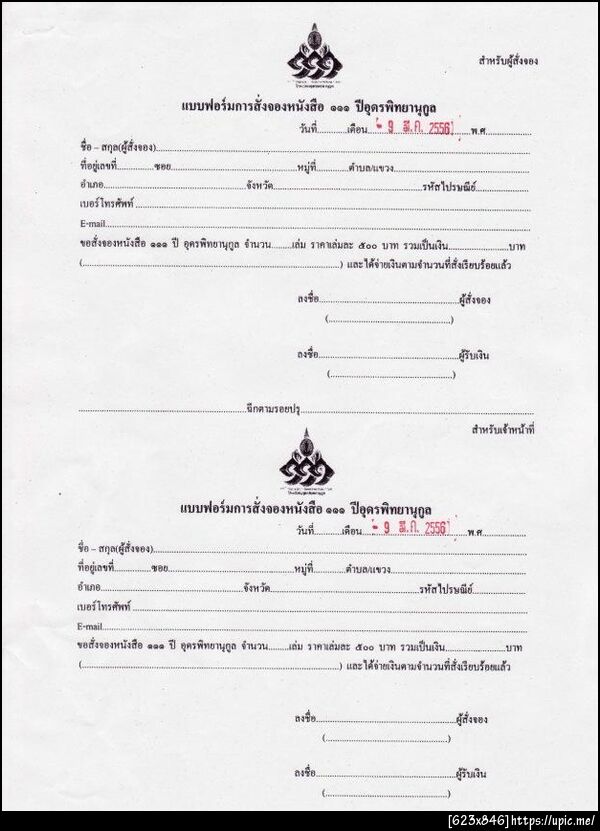 สำหรับผู้สั่งจอง
๑๑๑
แบบฟอร์มการสั่งจองหนังสือ ๑๑๑ ปีอุดรพิทยานุกูล
วันที่..........เดือน - 9 มี.ค. 2556 พ.ศ..............
ชื่อ – สกุล(ผู้สั่งจอง)..........
ที่อยู่เลขที่..........ซอย..........หมู่ที่..........ตำบล/แขวง..........
อำเภอ..........จังหวัด..........รหัสไปรษณีย์..........
เบอร์โทรศัพท์..........
E-mail..........
ขอสั่งจองหนังสือ ๑๑๑ ปี อุดรพิทยานุกูล จำนวน........เล่ม ราคาเล่มละ ๕๐๐ บาท รวมเป็นเงิน..........บาท
(..........) และได้จ่ายเงินตามจำนวนที่สั่งเรียบร้อยแล้ว
ลงชื่อ..........ผู้สั่งจอง
(..........)
ลงชื่อ..........ผู้รับเงิน
(..........)
..........ฉีกตามรอยปรุ..........
สำหรับเจ้าหน้าที่
๑๑๑
แบบฟอร์มการสั่งจองหนังสือ ๑๑๑ ปีอุดรพิทยานุกูล
วันที่..........เดือน - 9 มี.ค. 2556 พ.ศ..............
ชื่อ – สกุล(ผู้สั่งจอง)..........
ที่อยู่เลขที่..........ซอย..........หมู่ที่..........ตำบล/แขวง..........
อำเภอ..........จังหวัด..........รหัสไปรษณีย์..........
เบอร์โทรศัพท์..........
E-mail..........
ขอสั่งจองหนังสือ ๑๑๑ ปี อุดรพิทยานุกูล จำนวน........เล่ม ราคาเล่มละ ๕๐๐ บาท รวมเป็นเงิน..........บาท
(..........) และได้จ่ายเงินตามจำนวนที่สั่งเรียบร้อยแล้ว
ลงชื่อ..........ผู้สั่งจอง
(..........)
ลงชื่อ..........ผู้รับเงิน
(..........)
[623x846]https://upic.me/